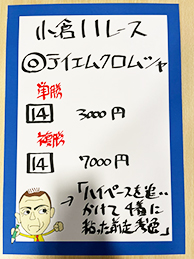 小倉11レース
◎テイエムクロムシャ
単勝
14 3000円
複勝
14 7000円
→「ハイペースを追っ
かけて4着に
粘った前走考色